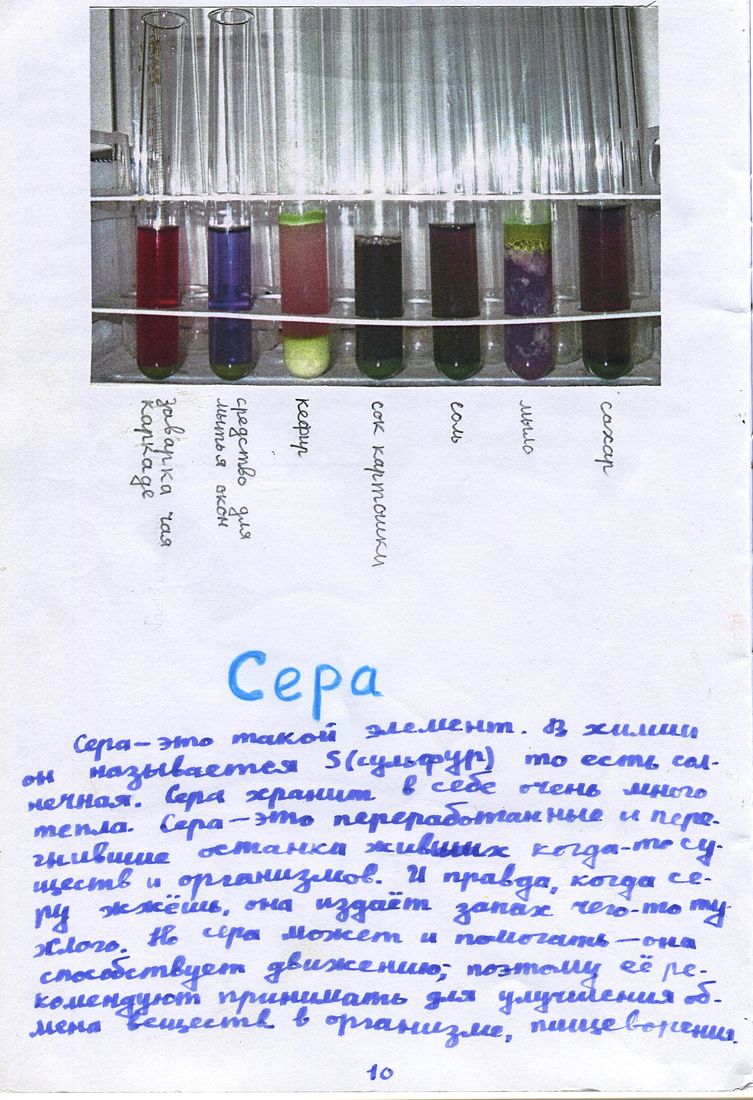 заварка чая
каркаде
средство для
мытья окон
кефир
сок картошки
соль
мыло
сахар
Сера
Сера–это такой элемент. В химии
он называется S(сульфур) то есть сол-
нечная. Сера хранит в себе очень много
тепла. Сера–это переработанные и пере-
гнившие останка живших когда-то су-
ществ и организмов. И правда, когда се-
ру жжёшь, она издаёт запах чего-то ту-
хлого. Но сера может и помогать–она
способствует движению; поэтому её ре-
комендуют принимать для улучшения об-
мена веществ в организме, пищеворения.
10